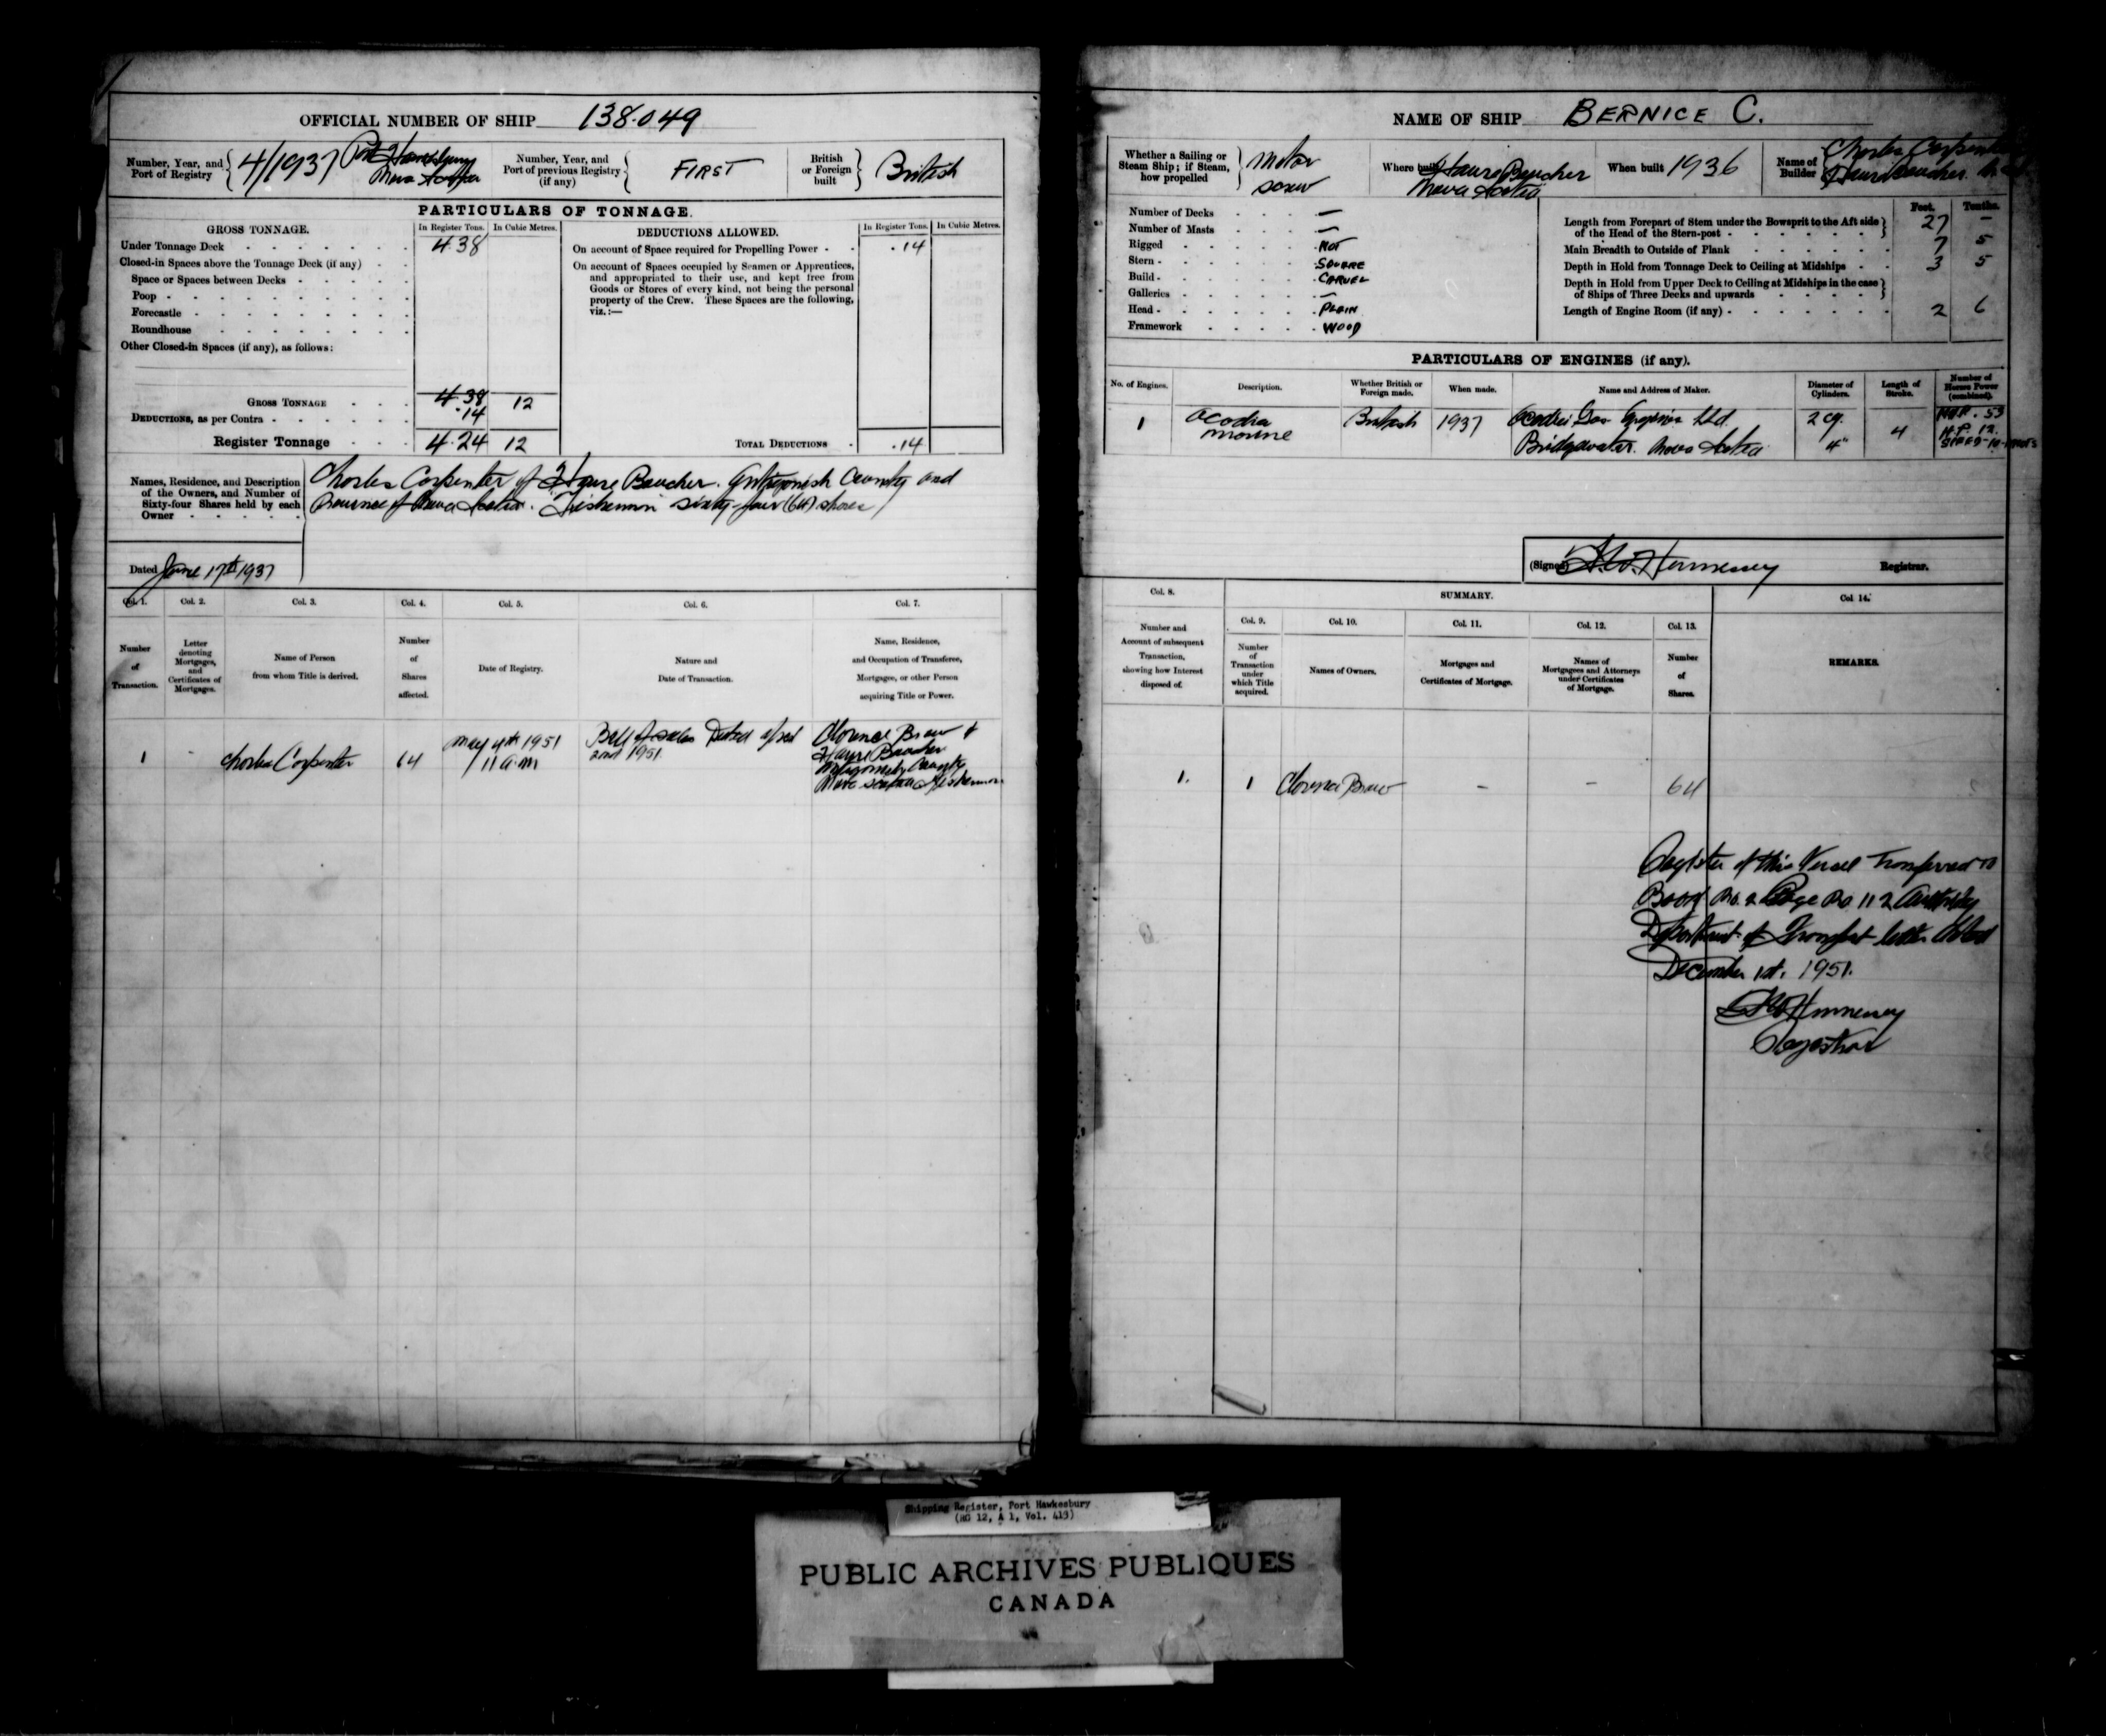 OFFICIAL NUMBER OF SHIP 138.049
Number, Year, and Port of Registry 4/1937 Port Hawkesbury Nova Scotia
Number, Year, and Port of previous Registry (if any) FIRST
British or Foreign built British
PARTICULARS OF TONNAGE.
GROSS TONNAGE. In Register Tons. In Cubic Metres.
Under Tonnage Deck 4.38
Closed-in Spaces above the Tonnage Deck (if any)
Space or Spaces between Decks
Poop
Forecastle
Roundhouse
Other Closed-in Spaces (if any), as follows:
GROSS TONNAGE 4.38 12
DEDUCTIONS, as per Contra .14
Register Tonnage 4.24 12
DEDUCTIONS ALLOWED. In Register Tons. In Cubic Metres.
On account of Space required for Propelling Power .14
On account of Spaces occupied by Seamen or Apprentices,
and appropriated to their use, and kept free from
Goods or Stores of every kind, not being the personal
property of the Crew. These Spaces are the following,
viz.:—
TOTAL DEDUCTIONS .14
Names, Residence, and Description
of the Owners, and Number of
Sixty-four Shares held by each
Owner
Charles Carpenter of Havre Boucher. Antigonish County and
Province of Nova Scotia. Fisherman sixty-four (64) shares
Dated June 17th 1937
Col. 1. Col. 2. Col. 3. Col. 4. Col. 5. Col. 6. Col. 7.
Number of Transaction.
Letter denoting Mortgages, and Certificates of Mortgages.
Name of Person from whom Title is derived.
Number of Shares affected.
Date of Registry.
Nature and Date of Transaction.
Name, Residence, and Occupation of Transferee, Mortgagee, or other Person acquiring Title or Power.
1 - Charles Carpenter 64
May 4th 1951
11 a.m
Bill of Sale Dated April
2nd 1951.
Clarence Brow
Havre Boucher
County
Nova Scotia Fisherman
NAME OF SHIP BERNICE C.
Whether a Sailing or Steam Ship; if Steam, how propelled Motor screw
Where built Havre Boucher Nova Scotia
When built 1936
Name of Builder Charles Carpenter Havre Boucher. N.S.
Number of Decks —
Number of Masts —
Rigged NOT
Stern SQUARE
Build CARVEL
Galleries —
Head PLAIN
Framework WOOD
Feet. Tenths.
Length from Forepart of Stem under the Bowsprit to the Aft side of the Head of the Stern-post 27 —
Main Breadth to Outside of Plank 7 5
Depth in Hold from Tonnage Deck to Ceiling at Midships 3 5
Depth in Hold from Upper Deck to Ceiling at Midships in the case of Ships of Three Decks and upwards
Length of Engine Room (if any) 2 6
PARTICULARS OF ENGINES (if any).
No. of Engines. Description. Whether British or Foreign made. When made. Name and Address of Maker. Diameter of Cylinders. Length of Stroke. Number of Horse Power (combined).
1 Acadia marine British 1937 Acadia Gas Engines Ltd. Bridgewater. Nova Scotia 2 cy. 4" 4 N.H.P. .53 H.P. 12. SPEED-10-KNOTS
(Signed) Hennessey Registrar.
Col. 8. SUMMARY. Col. 14.
Col. 9. Col. 10. Col. 11. Col. 12. Col. 13.
Number and Account of subsequent Transaction, showing how Interest disposed of.
Number of Transaction under which Title acquired.
Names of Owners.
Mortgages and Certificates of Mortgage.
Names of Mortgagees and Attorneys under Certificates of Mortgage.
Number of Shares.
REMARKS.
1. 1 Clarence Brow - - 64
Register of this Vessel Transferred to
Book No. 2 Page No. 112 Authority
Department of Transport letter dated
December 1st. 1951.
Hennessey
Registrar
Shipping Register, Port Hawkesbury
(RG 12, A 1, Vol. 413)
PUBLIC ARCHIVES PUBLIQUES
CANADA